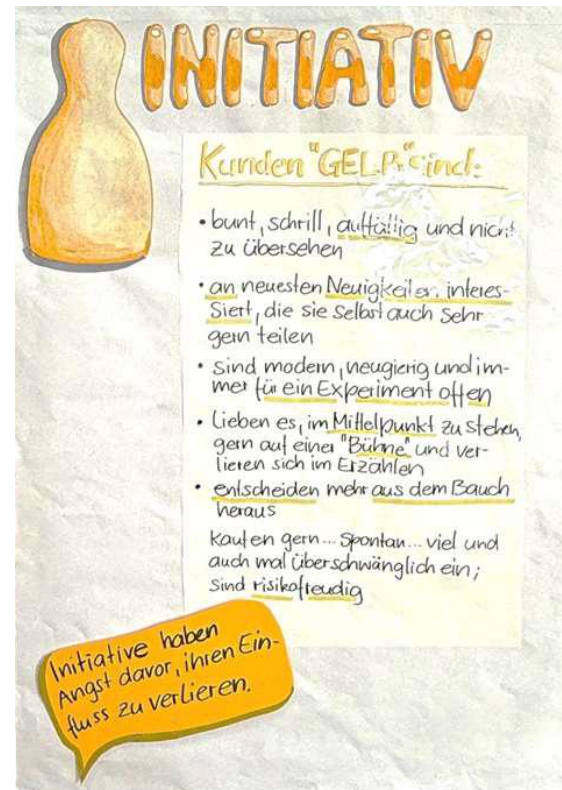 INITIATIV
Kunden "GELB" sind:
• bunt, schrill, auffällig und nicht
zu übersehen
• an neuesten Neuigkeiten interes-
siert, die sie selbst auch sehr
gern teilen
• sind modern, neugierig und im-
mer für ein Experiment offen
• Lieben es, im Mittelpunkt zu stehen,
gern auf einer "Bühne" und ver-
lieren sich im Erzählen
• entscheiden mehr aus dem Bauch
heraus
kaufen gern... spontan... viel und
auch mal überschwänglich ein;
sind risikofreudig
Initiative haben
Angst davor, ihren Ein-
fluss zu verlieren.